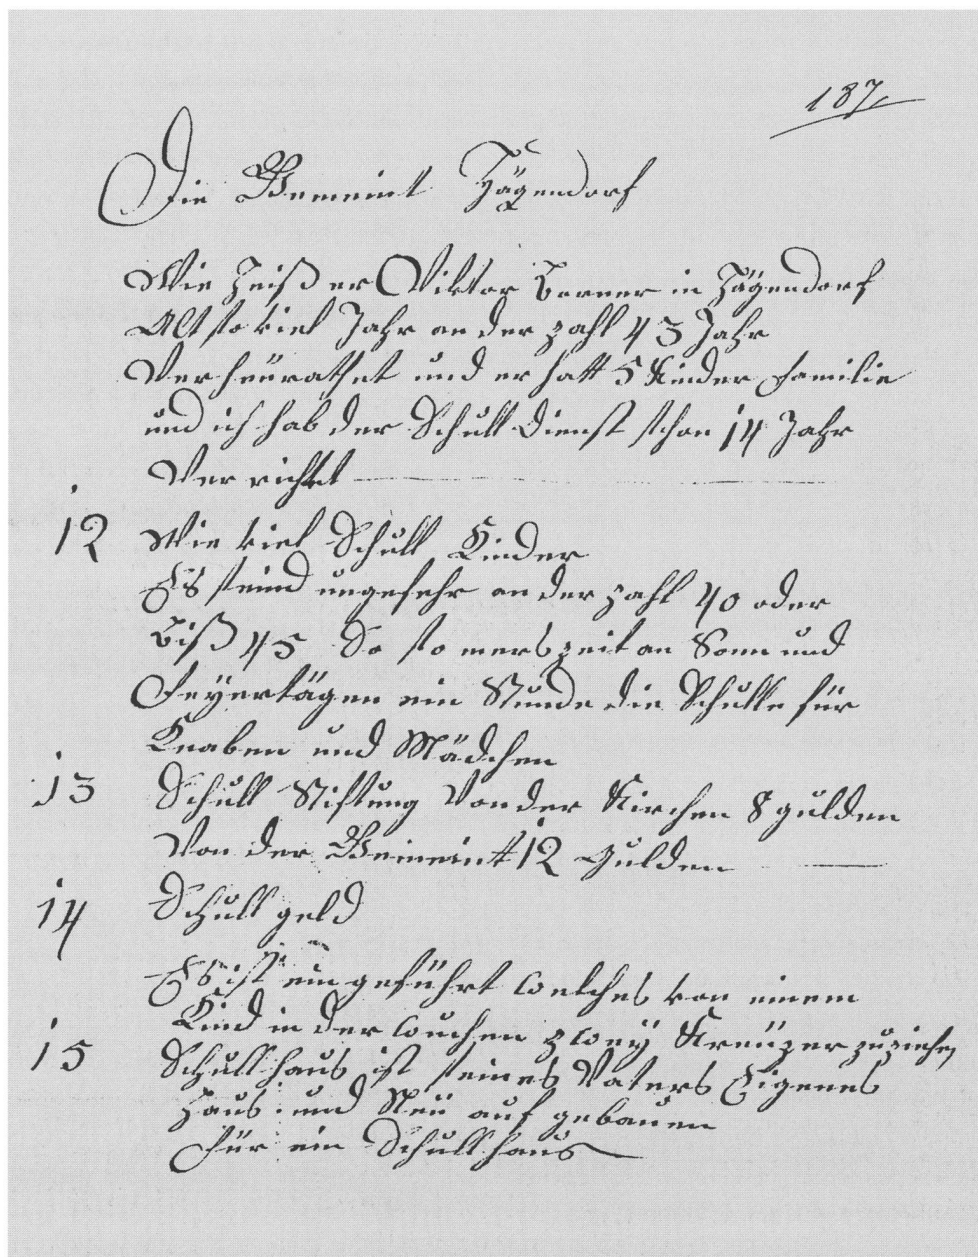 187
Die Gemeint Hägendorf
Wie heißt er Viktor Borner in Hägendorf
Alt so viel Jahr an der zahl 43 Jahr
Verheürathet und er hatt 5 Kinder familie
und ich hab der Schull dienst schon 14 Jahr
Verrichtet
12 Wie viel Schull Kinder
Es seind ungefehr an der zahl 40 oder
biß 45 So so merszeit an Sonn und
Feyertägen ein Stunde die Schulle für
Knaben und Mädchen
13 Schull Stiftung Von der Kirchen 8 gulden
Von der Gemeint 12 Gulden
14 Schull geld
Es ist ein geführt welches von einem
Kind in der wuchen zwey Kreüzer zuziehen
15 Schullhaus ist seines Vaters Eigenes
Haus und Neü auf gebauen
für ein Schullhaus